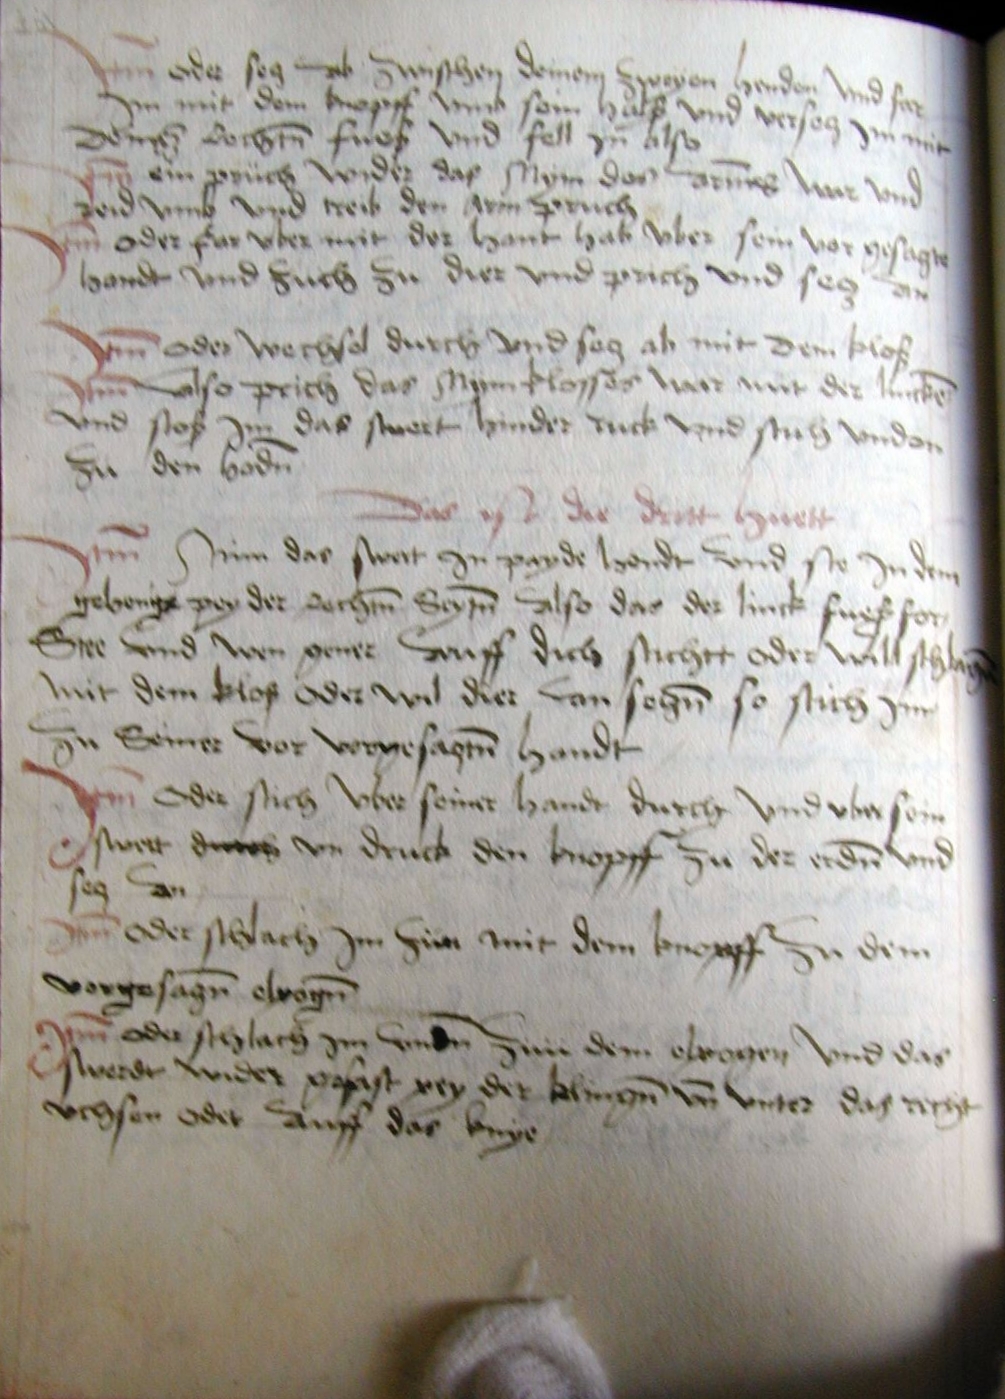 Itm oder secz ab zwischen deinem zwayen henden vnd far
Im mit dem knopff vmb sein hals vnd versecz im mit
deinem Rechtn fues vnd fell in also
Itm ein pruch wider das Nym des arms war vnd
reid vmb vnd treib den arm pruch
Itm oder far vber mit der hant hab vber sein vor gesagte
handt vnd zuch zu dier vnd prich vnd secz an
Itm oder wechsel durch vnd secz ab mit dem klos
Itm also prich das Nym klosses war mit der lincken
vnd stos Im das swert hinder ruck vnd stich vnden
zu den hodn
Das ist die dritt huett
Itm Nim das swert In payde hendt vnd ste In dem
gehenge pey der Rechtn Seytn also das der linck fues for
Stee vnd wen yener auff dich stichtt oder will schlagn
mit dem klos oder wil dier an seczn so stich im
zu Seiner vor vorgesagtn handt
Itm oder stich vber seiner handt durch vnd vber sein
swert durch vn druck den knopff zu der erdn vnd
secz an
Itm oder schlach Im zum mit dem knopff zu dem
vorgesagn elpogn
Itm oder schlach im vndn zuu dem elpogen vnd das
swerdt wider gefast pey der klingn vn vnter das recht
vchsen oder auff das knye